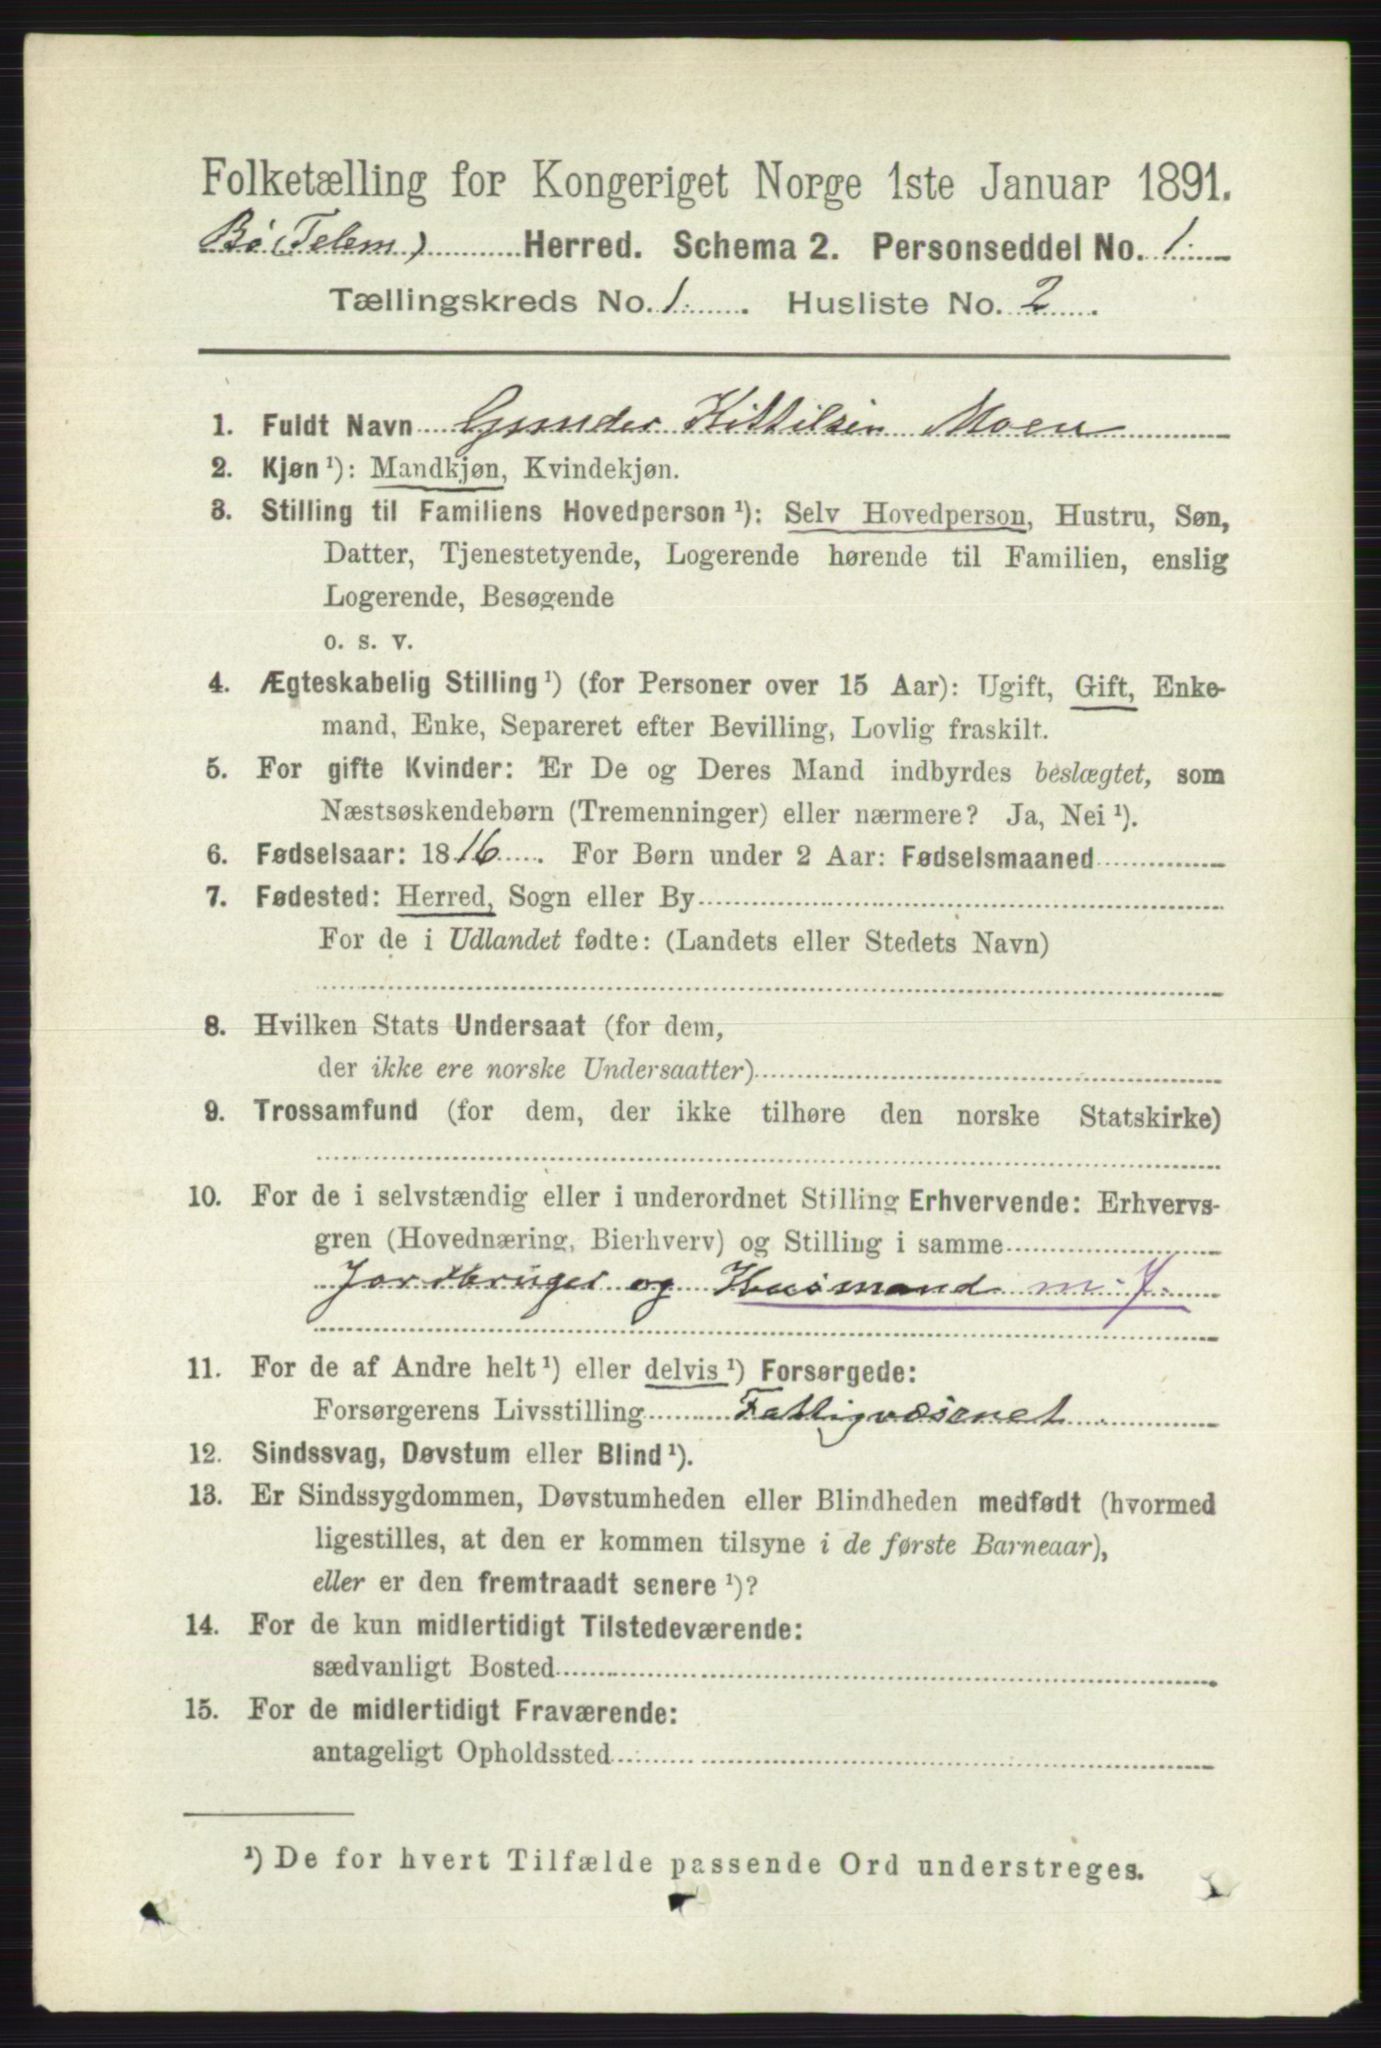 Folketælling for Kongeriget Norge 1ste Januar 1891.
Bø (Telem) Herred. Schema 2. Personseddel No. 1
Tællingskreds No. 1. Husliste No. 2.
1. Fuldt Navn Gunder Kittilsen Moen
2. Kjøn ¹): Mandkjøn, Kvindekjøn.
3. Stilling til Familiens Hovedperson ¹): Selv Hovedperson, Hustru, Søn,
Datter, Tjenestetyende, Logerende hørende til Familien, enslig
Logerende, Besøgende
o. s. v.
4. Ægteskabelig Stilling ¹) (for Personer over 15 Aar): Ugift, Gift, Enke-
mand, Enke, Separeret efter Bevilling, Lovlig fraskilt.
5. For gifte Kvinder: Er De og Deres Mand indbyrdes beslægtet, som
Næstsøskendebørn (Tremenninger) eller nærmere? Ja, Nei ¹).
6. Fødselsaar: 1816. For Børn under 2 Aar: Fødselsmaaned
7. Fødested: Herred, Sogn eller By
For de i Udlandet fødte: (Landets eller Stedets Navn)
8. Hvilken Stats Undersaat (for dem,
der ikke ere norske Undersaatter)
9. Trossamfund (for dem, der ikke tilhøre den norske Statskirke)
10. For de i selvstændig eller i underordnet Stilling Erhvervende: Erhvervs-
gren (Hovednæring, Bierhverv) og Stilling i samme
Jordbruger og Husmand m. J.
11. For de af Andre helt ¹) eller delvis ¹) Forsørgede:
Forsørgerens Livsstilling Fattigvæsenet
12. Sindssvag, Døvstum eller Blind ¹).
13. Er Sindssygdommen, Døvstumheden eller Blindheden medfødt (hvormed
ligestilles, at den er kommen tilsyne i de første Barneaar),
eller er den fremtraadt senere ¹)?
14. For de kun midlertidigt Tilstedeværende:
sædvanligt Bosted
15. For de midlertidigt Fraværende:
antageligt Opholdssted
¹) De for hvert Tilfælde passende Ord understreges.